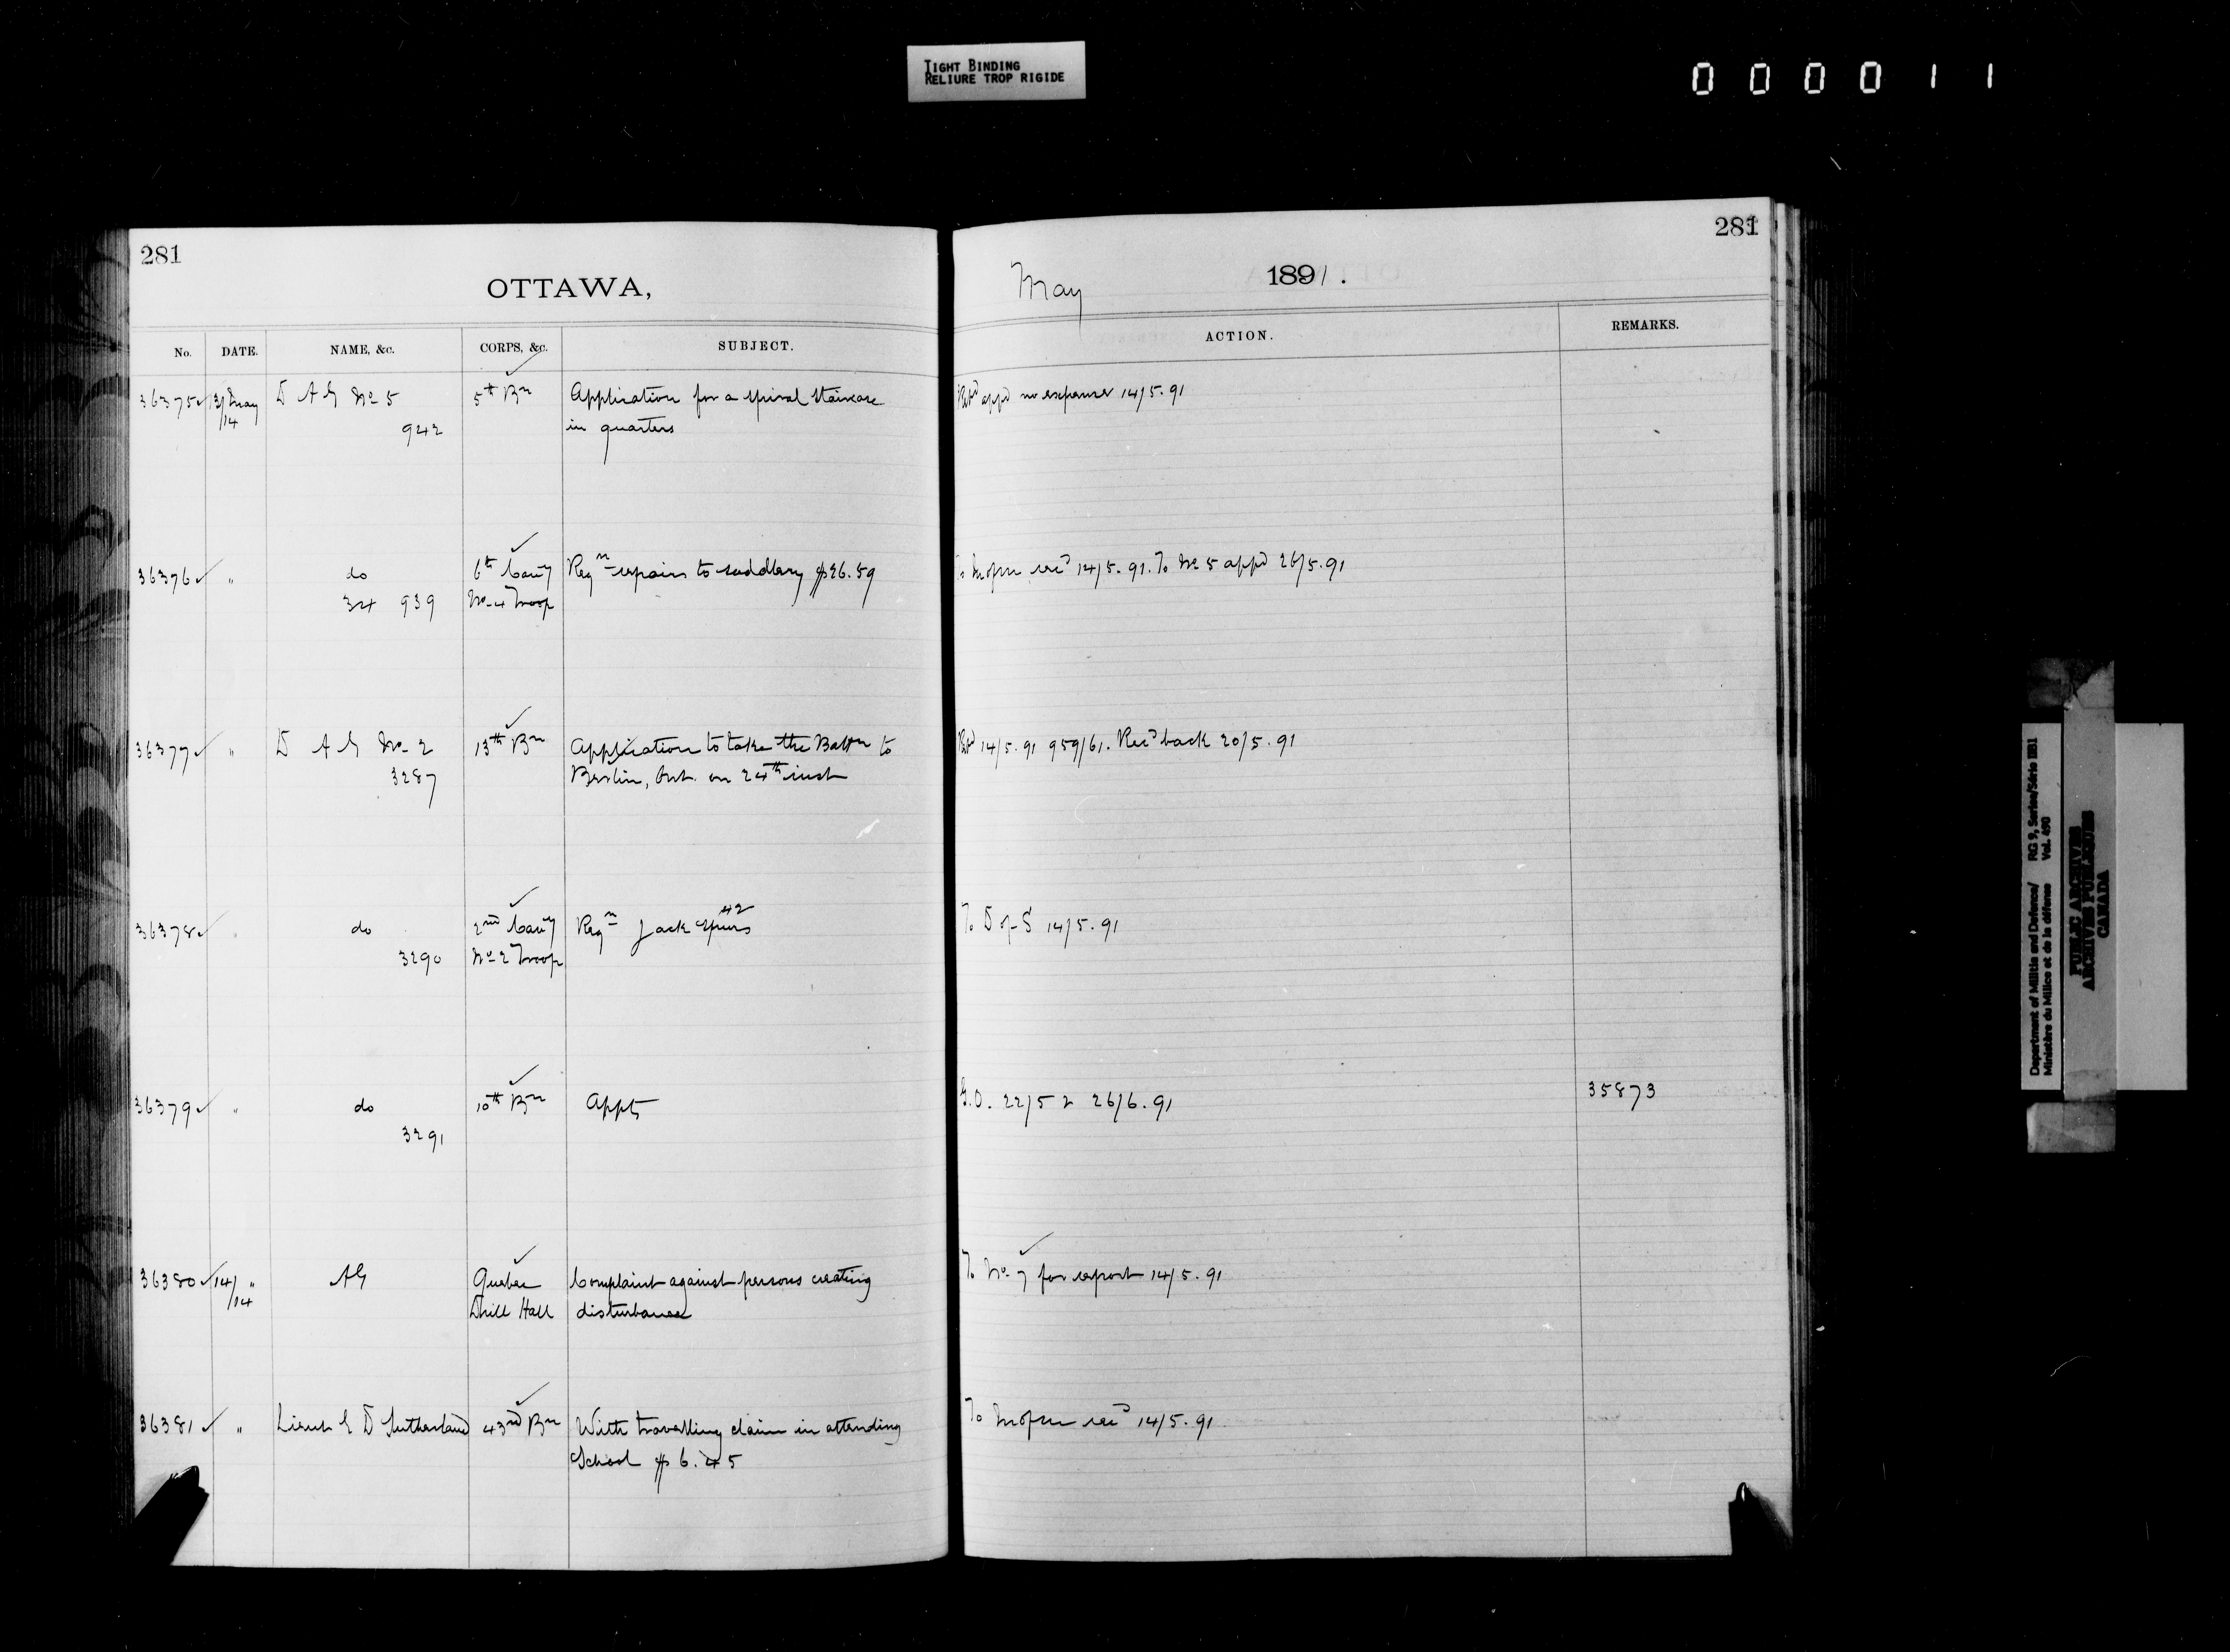 TIGHT BINDING
RELIURE TROP RIGIDE
000011
281
OTTAWA,
No. DATE. NAME, &c. CORPS, &c. SUBJECT.
36375 13/May D A G No 5 5th Bn Application for a spiral staircase
/14 942 in quarters
36376 " do 6th Cavy Reqn repairs to saddlery $26.59
34 939 No 4 Troop
36377 " D A G No 2 13th Bn Application to take the Battn to
3287 Berlin, Ont. on 24th inst
36378 " do 2nd Cavy Reqn Jack spurs 42
3290 No 2 Troop
36379 " do 10th Bn Appts
3291
36380 14/ " AG Quebec Complaint against persons creating
/14 Drill Hall disturbance
36381 " Lieut E D Sutherland 43rd Bn With travelling claim in attending
School $6.45
281
May 1891.
ACTION. REMARKS.
appd no expense 14/5.91
recd 14/5.91. To No 5 appd 26/5.91
14/5.91 959/61. Recd back 20/5.91
To D of S 14/5.91
G.O. 22/5 & 26/6.91 35873
To No 7 for report 14/5.91
To recd 14/5.91
Department of Militia and Defence/ RG 9, Series/Série IIB1
Ministère du Milice et de la défense Vol. 490
PUBLIC ARCHIVES
ARCHIVES PUBLIQUES
CANADA